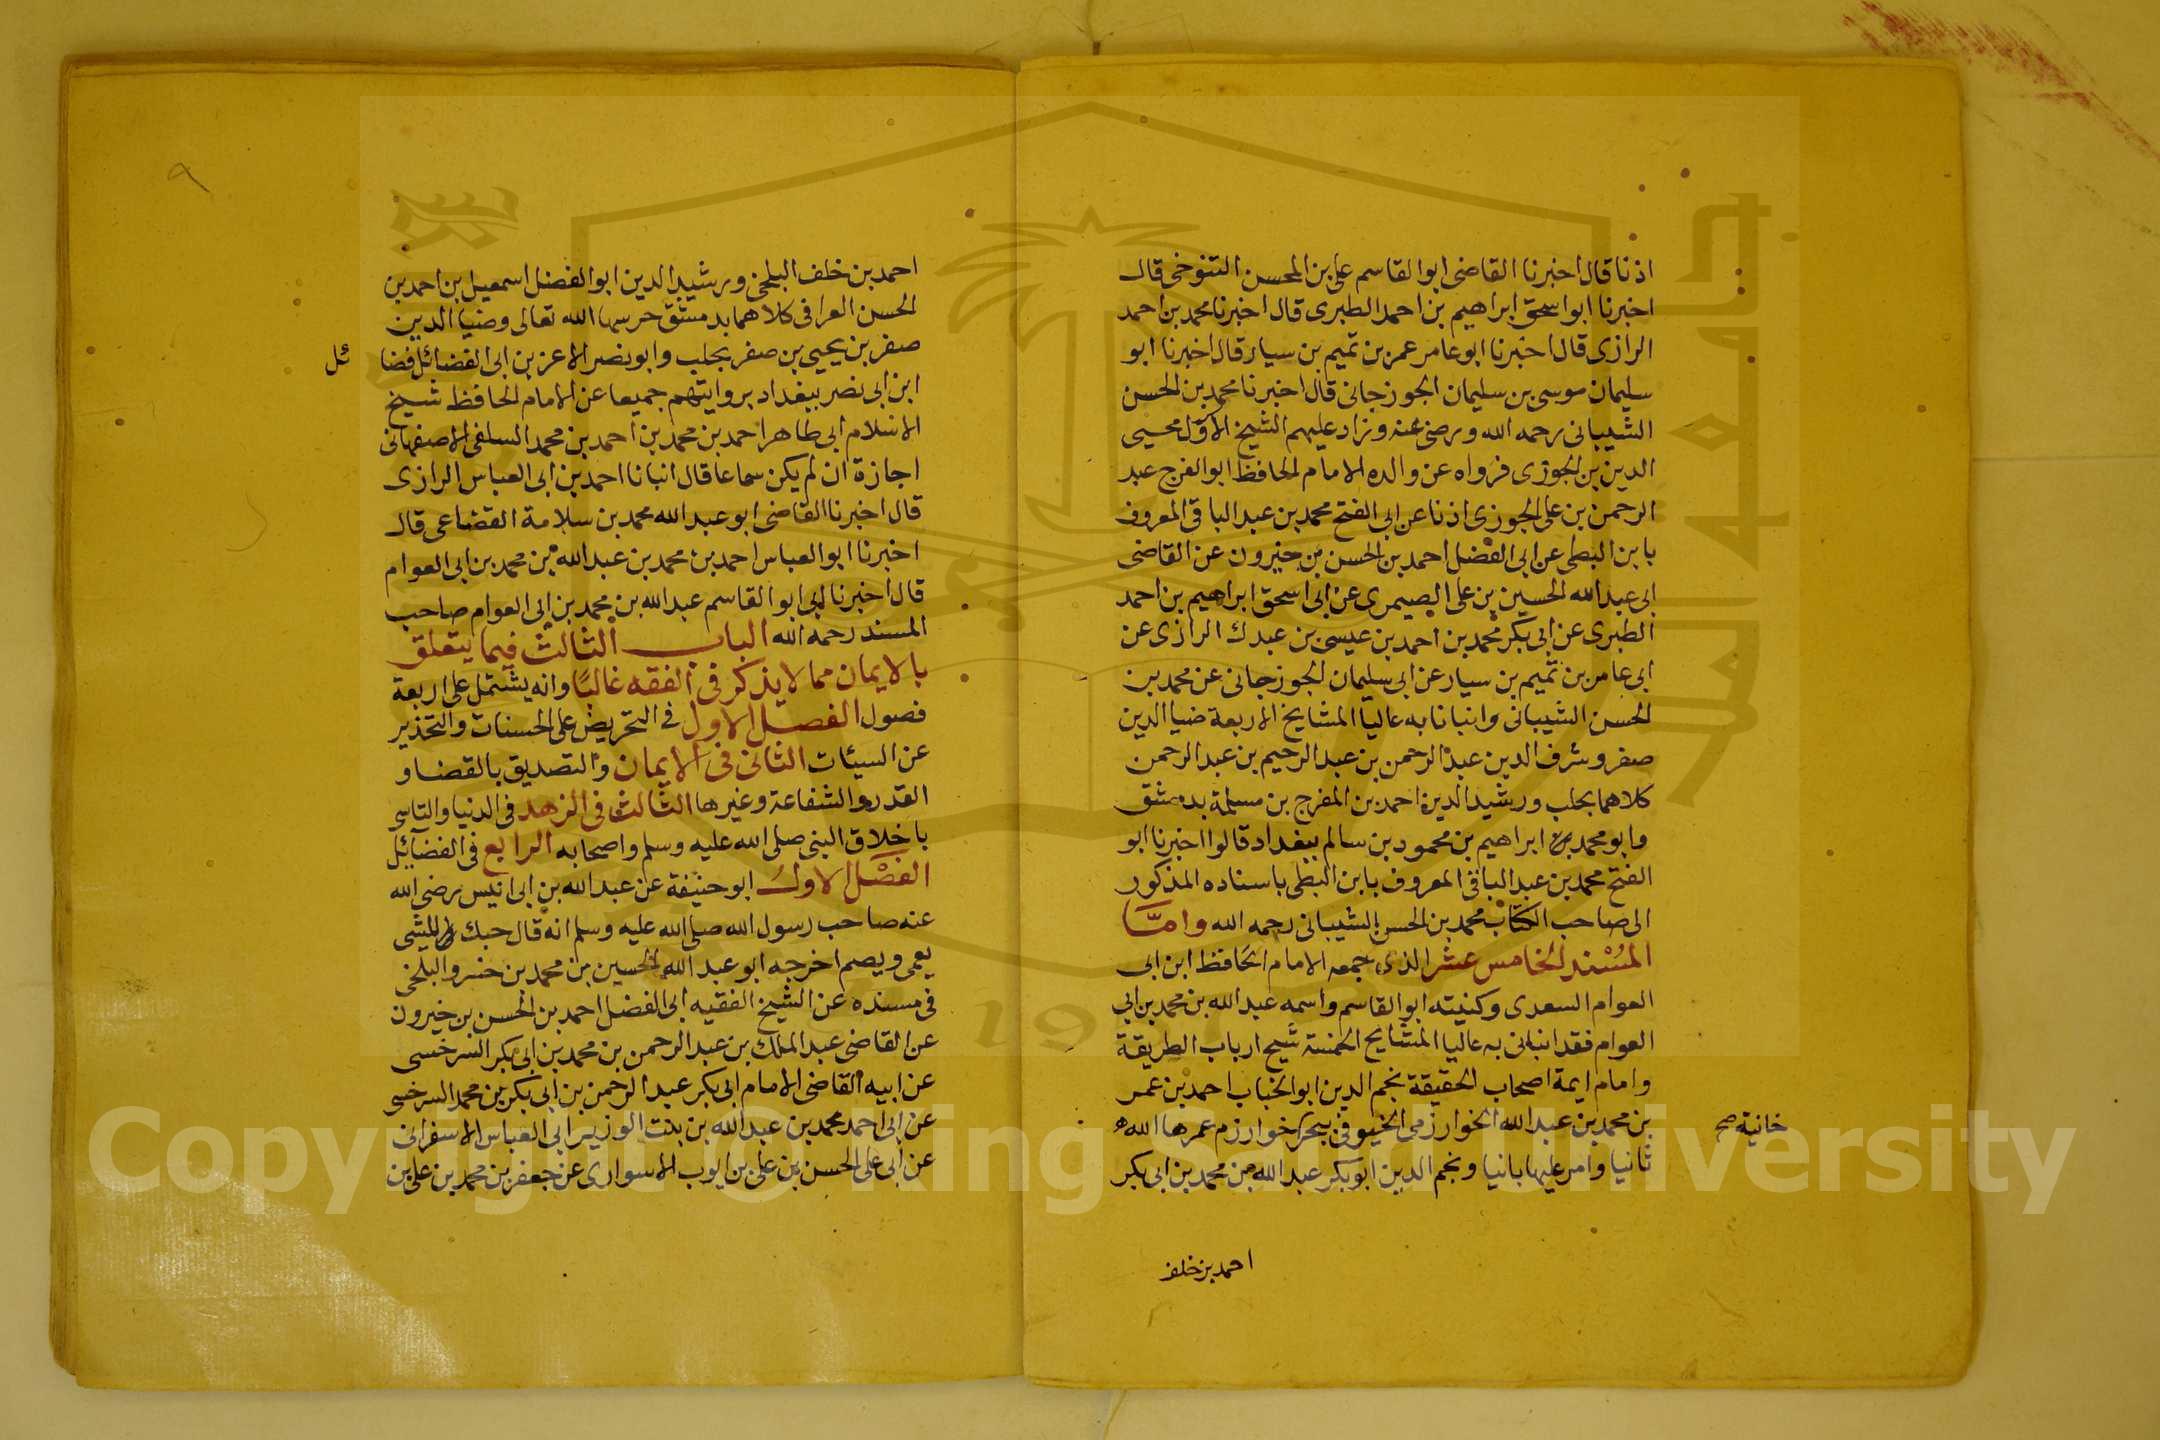 اذنا قال اخبرنا القاضى ابو القاسم على بن المحسن التنوخى قال
اخبرنا ابو اسحق ابراهيم بن احمد الطبرى قال اخبرنا محمد بن احمد
الرازى قال اخبرنا ابو عامر عمر بن تميم بن سيار قال اخبرنا ابو
سليمان موسى بن سليمان الجوزجانى قال اخبرنا محمد بن الحسن
الشيبانى رحمه الله ورضى عنه وزاد عليهم الشيخ الاول محيى
الدين بن الجوزى فرواه عن والده الامام الحافظ ابو الفرج عبد
الرحمن بن على الجوزى اذنا عن ابى الفتح محمد بن عبد الباقى المعروف
بابن البطى عن ابى الفضل احمد بن الحسن بن خيرون عن القاضى
ابى عبد الله الحسين بن على الصيمرى عن ابى اسحق ابراهيم بن احمد
الطبرى عن ابى بكر محمد بن احمد بن عيسى بن عبدك الرازى عن
ابى عامر بن تميم بن سيار عن ابى سليمان الجوزجانى عن محمد بن
الحسن الشيبانى وانبانا به عاليا المشايخ الاربعة ضيا الدين
صقر وشرف الدين عبد الرحمن بن عبد الرحيم بن عبد الرحمن
كلاهما بحلب ورشيد الدين احمد بن المفرج بن مسلمة بدمشق
وابو محمد بن ابراهيم بن محمود بن سالم ببغداد قالوا اخبرنا ابو
الفتح محمد بن عبد الباقى المعروف بابن البطى باسناده المذكور
الى صاحب الكتاب محمد بن الحسن الشيبانى رحمه الله واما
المسند الخامس عشر الذى جمعه الامام الحافظ ابن ابى
العوام السعدى وكنيته ابو القاسم واسمه عبد الله بن محمد بن ابى
العوام فقد انبانى به عاليا المشايخ الخمسة شيخ ارباب الطريقة
وامام ايمة اصحاب الحقيقة نجم الدين ابو الجناب احمد بن عمر
بن محمد بن عبد الله الخوارزمى الخيوقى بجر خوارزم عمرها الله
خانية صح
ثانيا وامر عليها بانيا ونجم الدين ابو بكر عبد الله بن محمد بن ابى بكر
احمد بن خلف
٩
احمد بن خلف البلخى ورشيد الدين ابو الفضل اسمعيل بن احمد بن
الحسن العراقى كلاهما بدمشق حرسها الله تعالى وضيا الدين
صقر بن يحيى بن صقر بحلب وابو نصر الاعز بن ابى الفضائل فضا
ئل
ابن ابى نصر ببغداد بروايتهم جميعا عن الامام الحافظ شيخ
الاسلام ابى طاهر احمد بن محمد بن احمد بن محمد السلفى الاصفهانى
اجازة ان لم يكن سماعا قال انبانا احمد بن ابى العباس الرازى
قال اخبرنا القاضى ابو عبد الله محمد بن سلامة القضاعى قال
اخبرنا ابو العباس احمد بن محمد بن عبد الله بن محمد بن ابى العوام
قال اخبرنا ابى ابو القاسم عبد الله بن محمد بن ابى العوام صاحب
المسند رحمه الله الباب الثالث فيما يتعلق
بالايمان مما لا يذكر فى الفقه غالبا وانه يشتمل على اربعة
فصول الفصل الاول فى التحريض على الحسنات والتحذير
عن السيئات الثانى فى الايمان والتصديق بالقضا و
القدر والشفاعة وغيرها الثالث فى الزهد فى الدنيا والتاسى
باخلاق النبى صلى الله عليه وسلم واصحابه الرابع فى الفضائل
الفصل الاول ابو حنيفة عن عبد الله بن ابى انيس رضى الله
عنه صاحب رسول الله صلى الله عليه وسلم انه قال حبك للشى
يعمى ويصم اخرجه ابو عبد الله الحسين بن محمد بن خسرو البلخى
فى مسنده عن الشيخ الفقيه ابى الفضل احمد بن الحسن بن خيرون
عن القاضى عبد الملك بن عبد الرحمن بن محمد بن ابى بكر السرخسى
عن ابيه القاضى الامام ابى بكر عبد الرحمن بن ابى بكر بن محمد السرخسى
عن ابى احمد محمد بن عبد الله بن بنت الوزير ابى العباس الاسفرانى
عن ابى على الحسن بن على بن ايوب الاسوارى عن جعفر بن محمد بن على بن
جامعة الملك سعود
19
Copyright © King Saud University